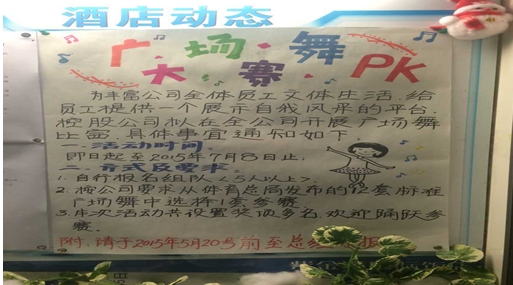 酒店动态
广·场·舞
大·赛·PK
为丰富公司全体员工文体生活,给
员工提供一个展示自我风采的平台,
控股公司拟在全公司开展广场舞
比赛,具体事宜通知如下
一.活动时间:
即日起至2015年7月8日止;
二.方式及要求:
1.自行报名组队<5人以上>
2.按公司要求从体育总局发布的12套标准
广场舞中选择1套参赛
3.本次活动共设置奖项多名,欢迎踊跃参
赛.
附:请于2015年5月20号前至总 报